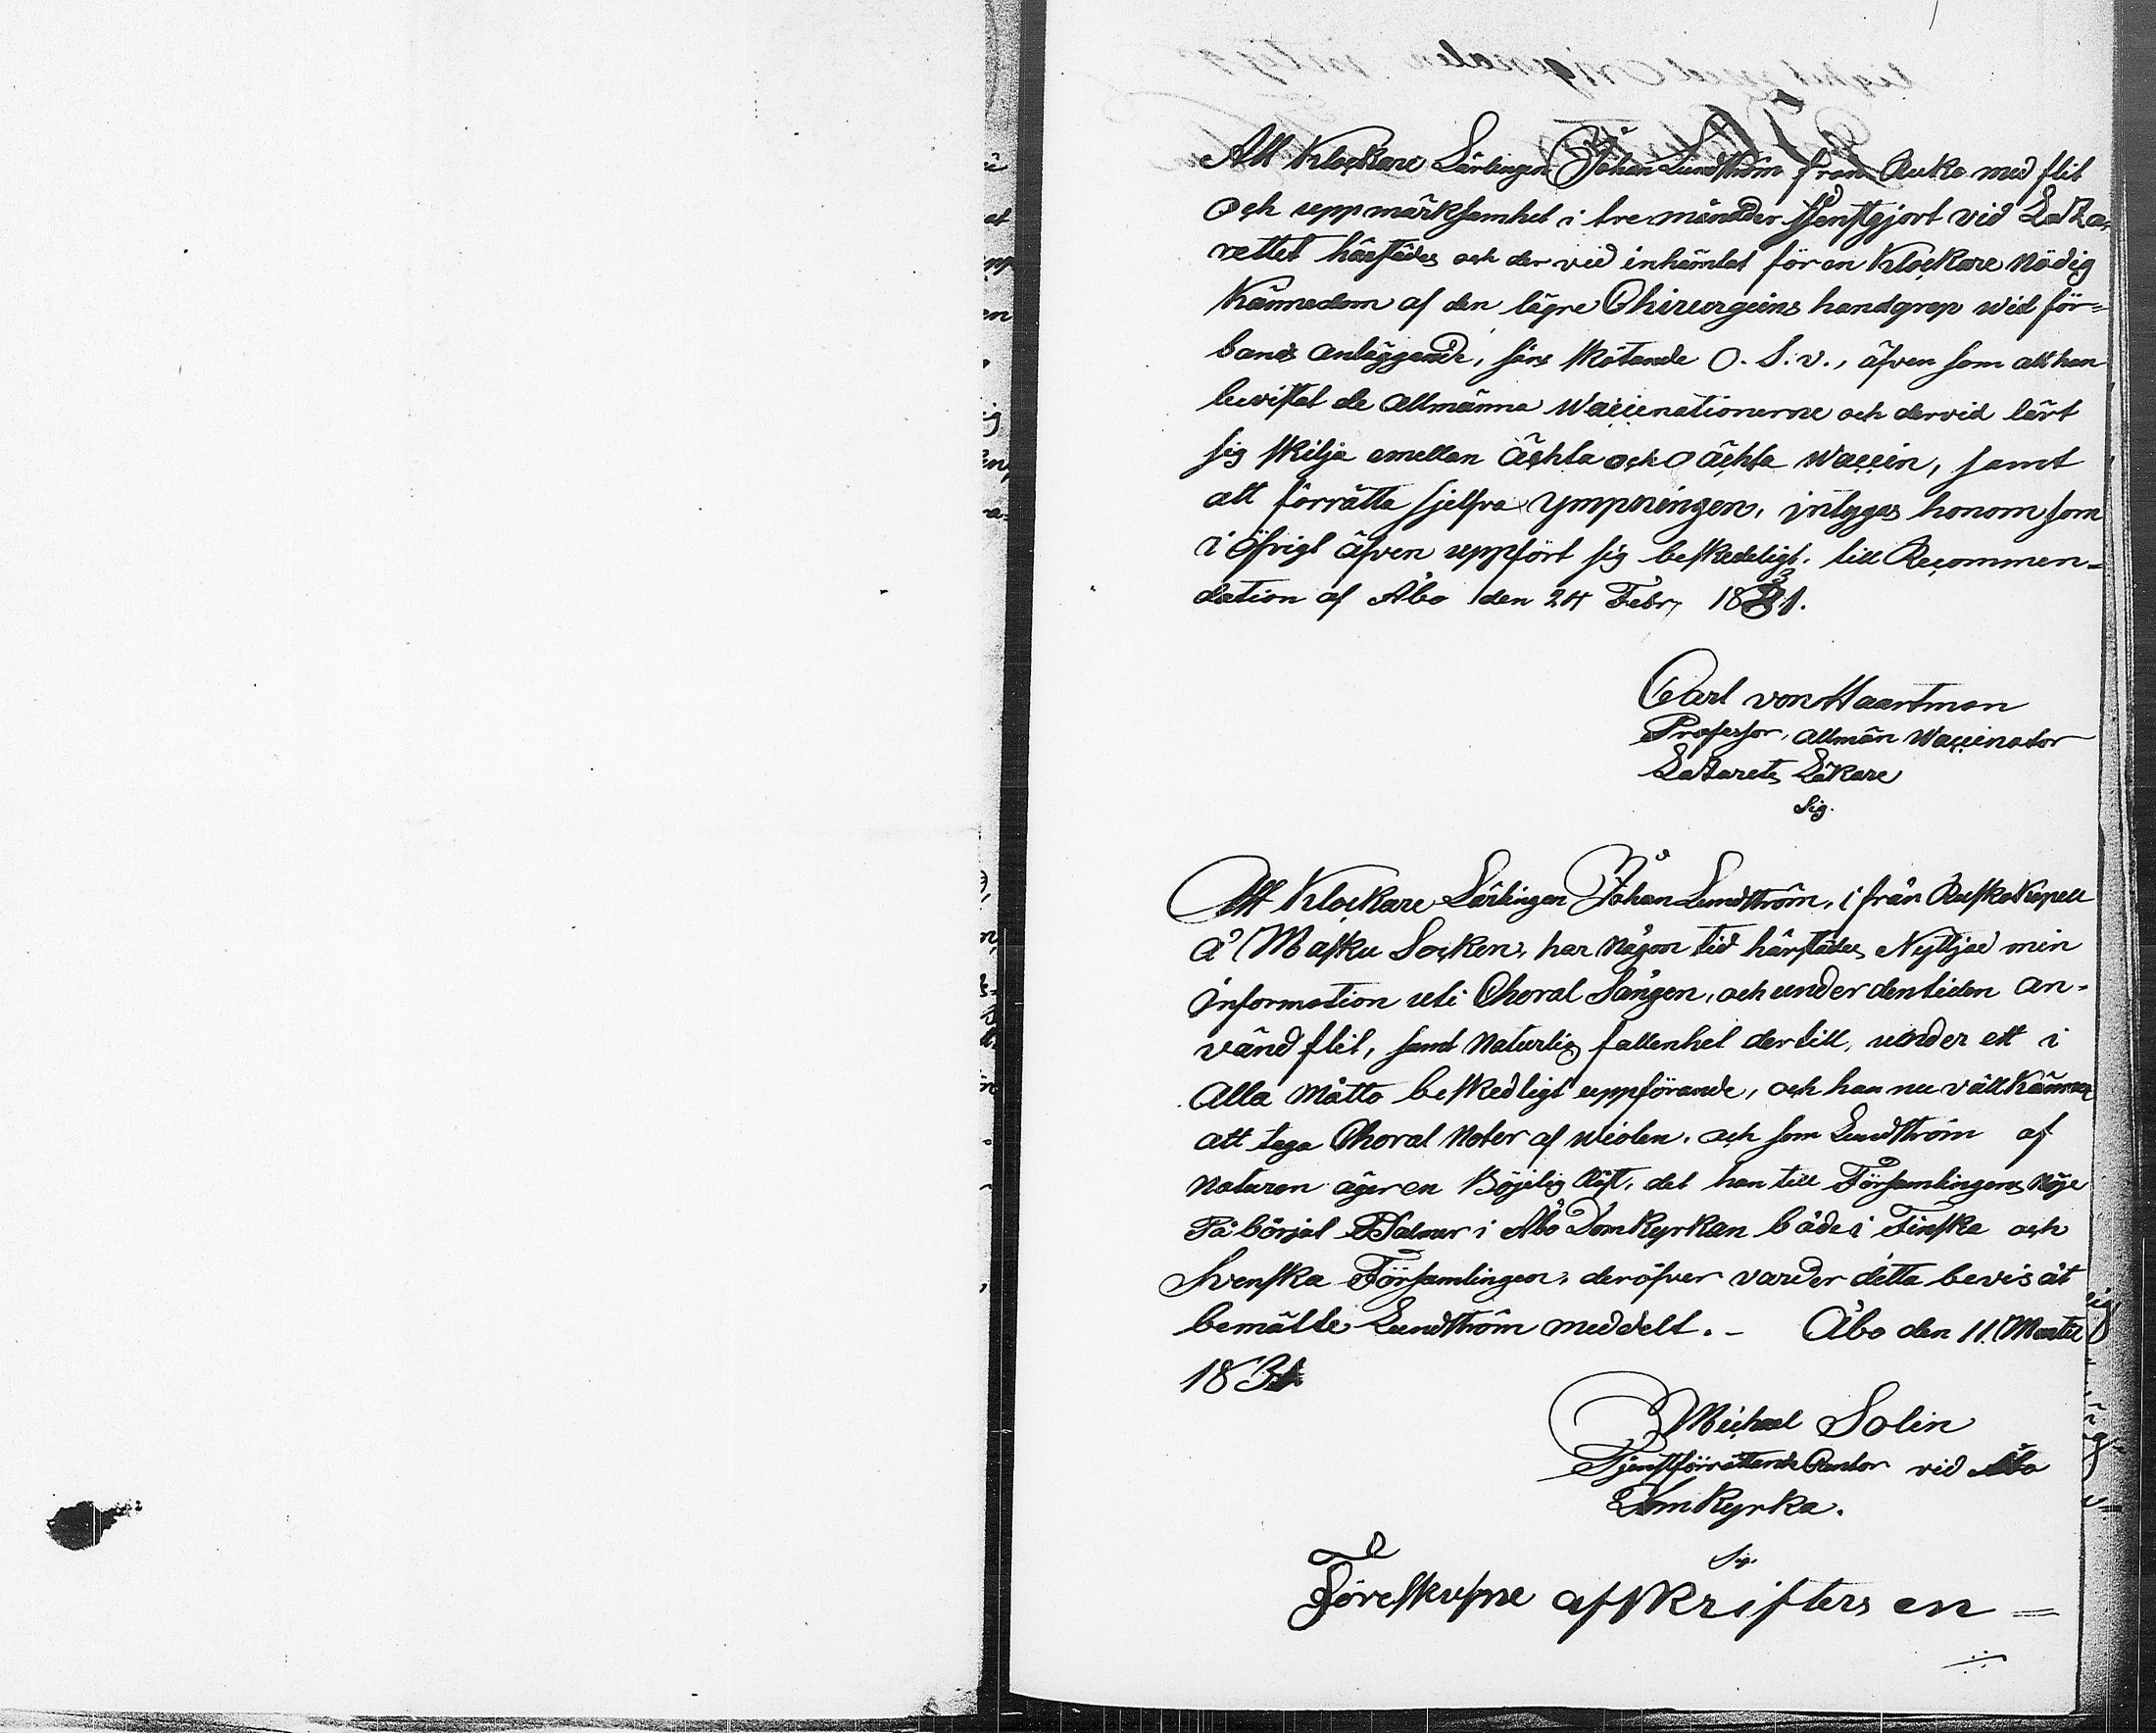 Att Klockare Lärlingen Johan Lundström från Rusko med flit
och uppmärksamhet i tre månader tjenstgjort vid Laza-
rettet härstädes och der vid inhämtat för en Klockare nödig
Kännedom af den lägre Chirurgiens handgrep wid för=
bands anläggande, sårs skötande o. s. v., äfven som att han
bevistat de allmänna Waccinationerne och dervid lärt
sig skilja emellan ächta och oächta Waccin, samt
att förrätta sjelfva Ympningen, intygas honom som
i öfrigt äfven uppfört sig beskedeligt. till Recommen=
dation af Åbo den 24 Febr. 1831.
Carl von Haartman
Professor, allmän Waccinator
Lazarets Läkare
Sig.
Att Klockare Lärlingen Johan Lundström, i från Rusko Kapell
å Masku Socken, har någon tid härstädes Nyttjad min
information uti Choral Sången, och under den tiden an-
vänd flit, samt Naturlig fallenhet dertill, under ett i
Alla måtto beskedligt uppförande, och han nu väll känner
att taga Choral Noter af wiolen. och som Lundström af
Naturen äger en Böjelig Röst, det han till Församlingens Nöje
Påbörjat Psalmer i Åbo Domkyrkan både i Finska och
Svenska Församlingen, deröfver varder detta bevis åt
bemälte Lundström meddelt. - Åbo den 11. Martii
1831
Michael Solin
Tjenstförrättande Cantor vid Åbo
Domkyrka.
Sig.
Föreskrefne afskrifters en=